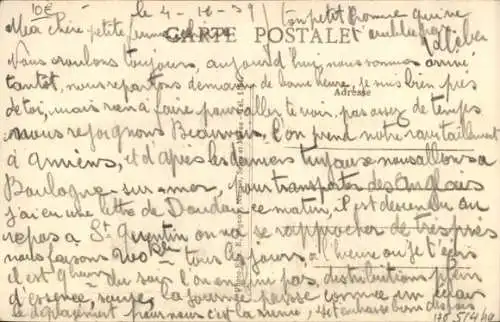 10€
le 4-10-39
ton petit homme qui ne
t'oublie pas
Ma chère petite femme chérie
CARTE POSTALE
Nous roulons toujours, aujourd'hui, nous sommes arrivé
tantôt, nous repartons demain de bonne heure, je suis bien près
Adresse
de toi, mais rien à faire pour aller te voir, pas assez de temps
nous rejoignons Beauvais, l'on prend notre ravitaillement
à Amiens, et d'après les derniers tuyaux nous allons à
Boulogne-sur-mer, pour transporter des Anglais
j'ai eu une lettre de ce matin, il est descendu au
repos à St Quentin on va se rapprocher de très près
nous faisons tous les jours à l'heure où je t'écris
il est 9 heures du soir, l'on en peu pas, distributions plein
d'essence, la journée passe comme un éclair
le déplacement pour nous c'est la ruine,